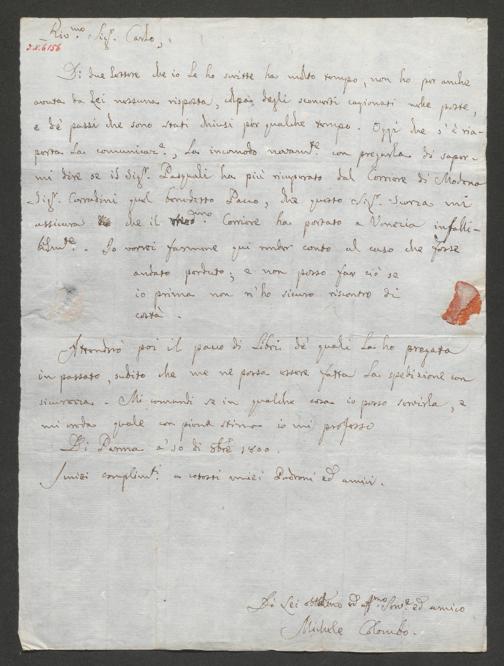 Riv.mo Sig.r Carlo,
2.V.6156
Di due lettere che io Le ho scritte ha molto tempo, non ho per anche
avuta da Lei nessuna risposta, degli sconcerti cagionati nelle poste,
e de' passi che sono stati chiusi per qualche tempo. Oggi che s'è ria-
perta la comunicaz.e, La incomodo novam.te con pregarla di saper-
mi dire se il Sig.r Pasquali ha più ricuperato dal Corriere di Modena
Sig.r Corradini quel benedetto Pacco, che questo Sig.r Sforza mi
assicura che il Corriere ha portato a Venezia infalli-
bilm.te. Io vorrei farmene qui render conto al caso che fosse
andato perduto; e non posso far ciò se
io prima non n'ho sicuro riscontro di
costà.
Attenderò poi il pacco di Libri de' quali La ho pregata
in passato, subito che me ne possa essere fatta la spedizione con
sicurezza. Mi comandi se in qualche cosa io posso servirla, e
mi creda quale con piena stima io mi professo
Di Parma a' 10 di 8bre 1800.
I miei complim.ti a cotesti miei Padroni ed amici.
Di Lei ed aff.mo Serv.e ed amico
Michele Colombo.